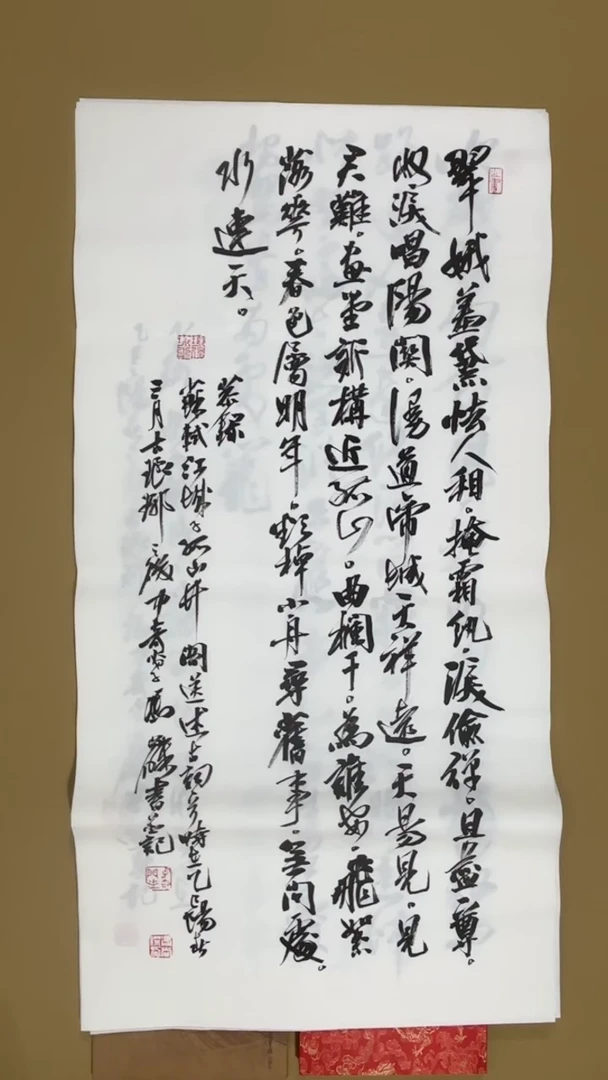 翠娥羞黛怯人看。掩霜紈，淚偷彈。且盡一尊。
收淚唱陽關。漫道帝城天樣遠。天易見，見
君難。畫堂新構近孤山。曲欄干。為誰安，飛絮
落花。春色屬明年，欲棹小舟尋舊事，無問處。
水連天。
恭錄
蘇軾江城子孤山竹閣送述古詞 時在乙 陽春
三月古瑯琊 書並記